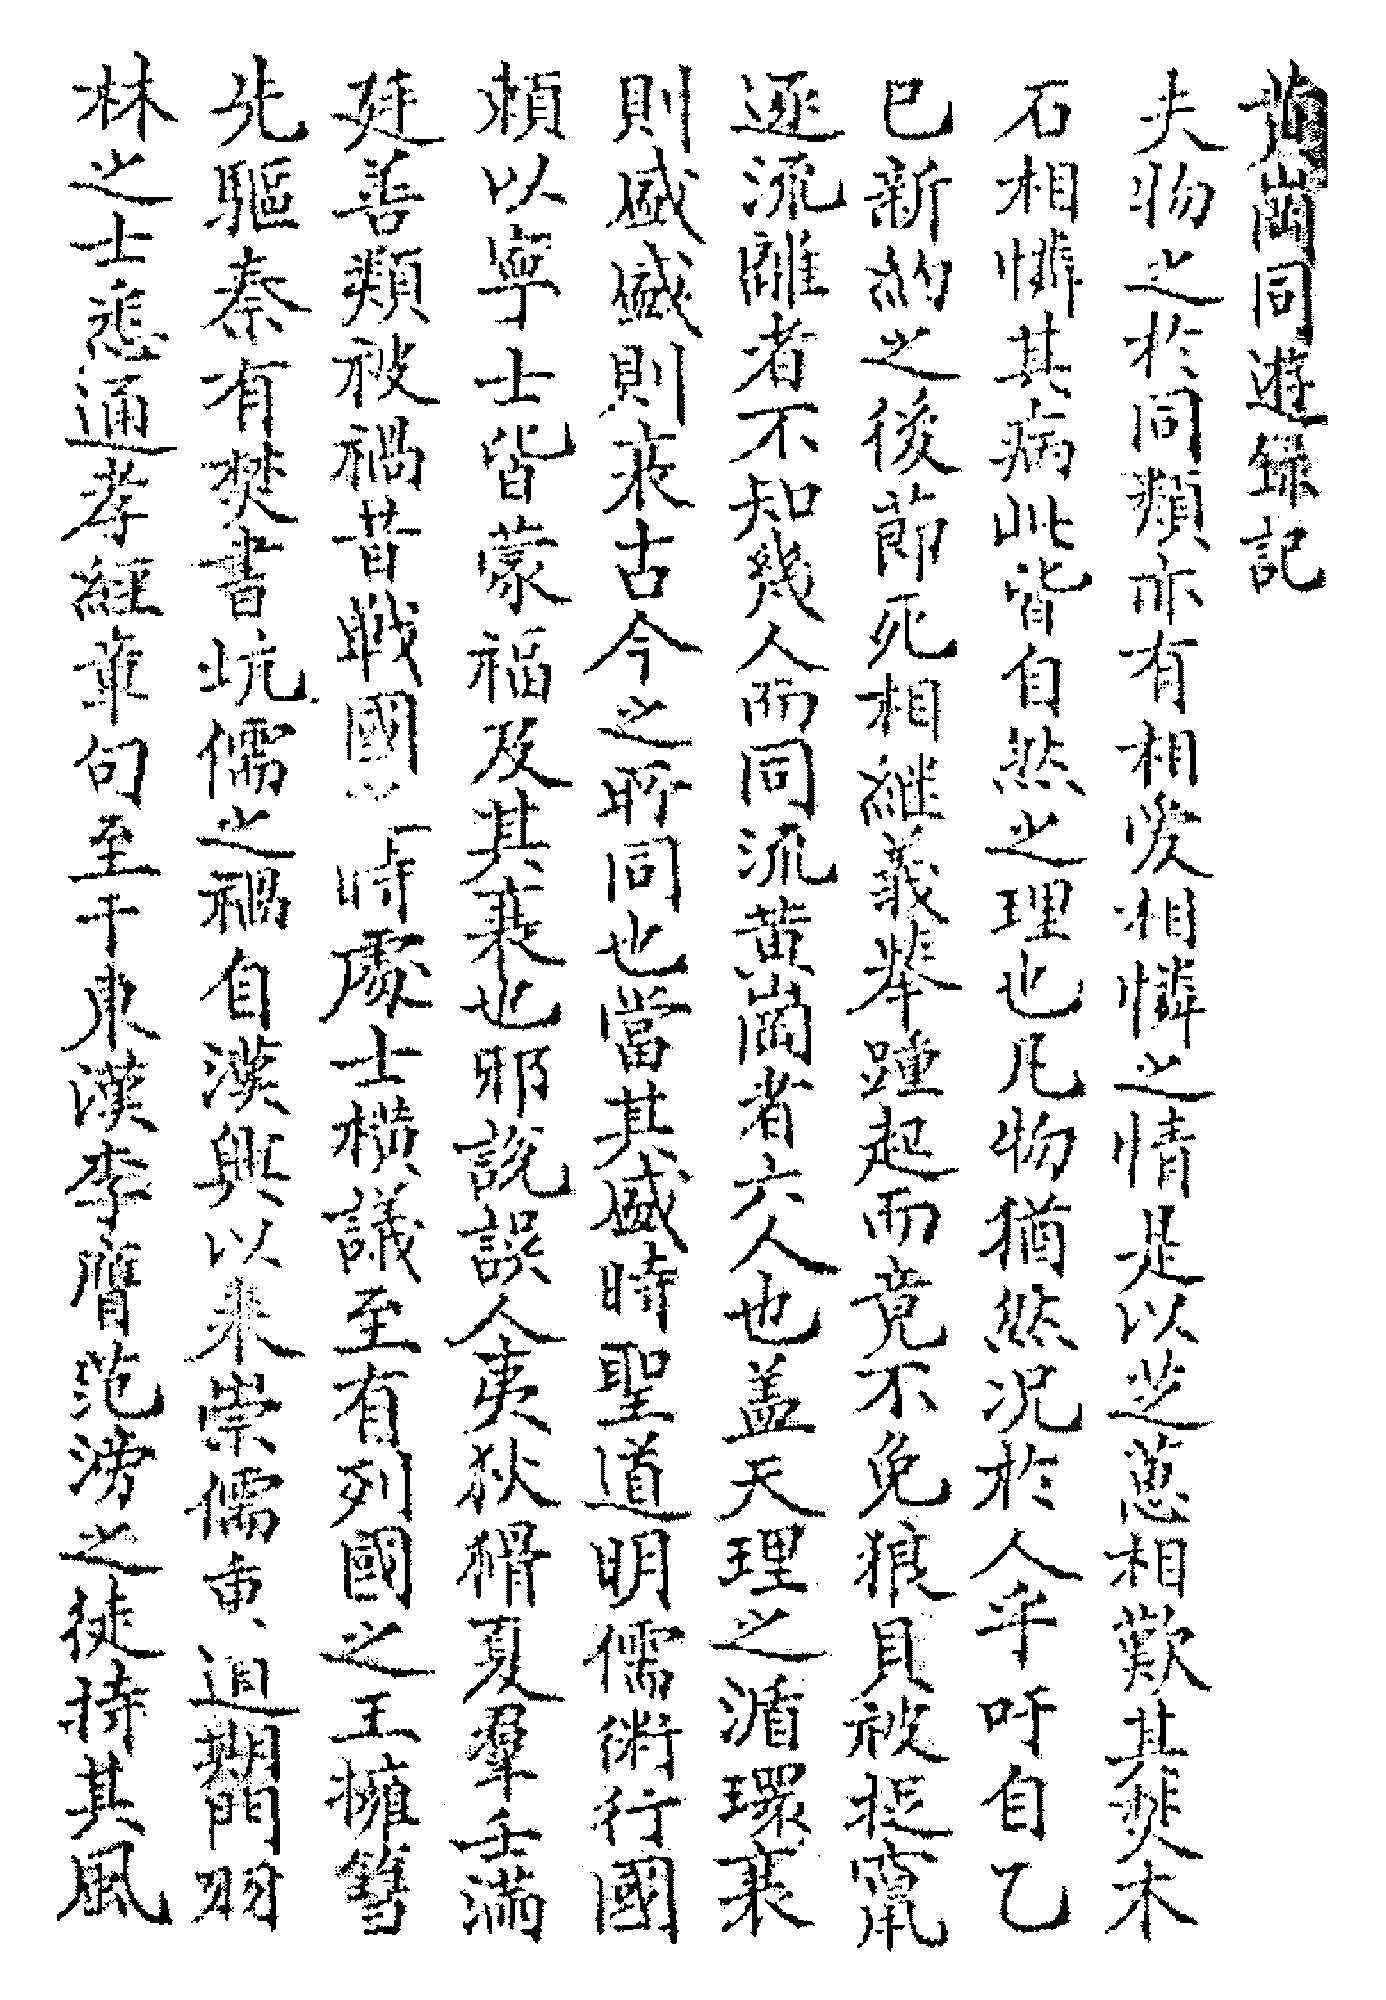 黄崗同遊録記
夫物之於同類亦有相愛相憐之情是以芝蕙相歎其焚木
石相憐其病此皆自然之理也凡物猶然況於人乎吁自乙
巳新約之後節死相繼義擧踵起而竟不免狼貝被捉竄
逐流離者不知幾人而同流黄崗者六人也盖天理之循環衰
則盛盛則衰古今之所同也當其盛時聖道明儒術行國
頼以寧士皆蒙福及其衰也邪説誤人夷狄猾夏羣壬滿
廷善類被禍昔戰國時處士横議至有列國之王擁篲
先驅秦有焚書坑儒之禍自漢興以來崇儒重 期門羽
林之士悉通孝經章句至于東漢李膺范滂之徒持其風